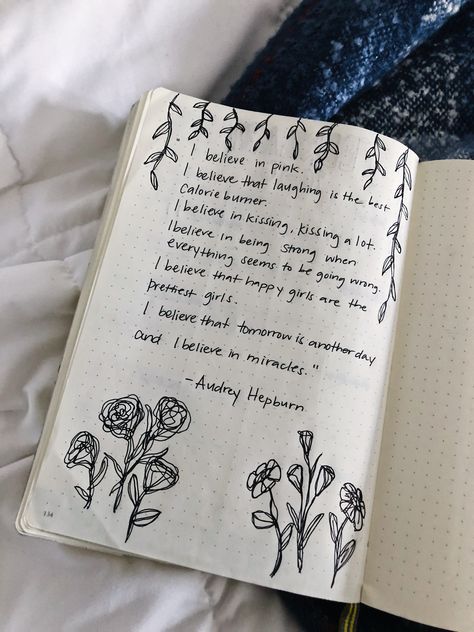 " I believe in pink.
I believe that laughing is the best
calorie burner.
I believe in kissing, kissing a lot.
I believe in being strong when
everything seems to be going wrong.
I believe that happy girls are the
prettiest girls.
I believe that tomorrow is another day
and I believe in miracles."
-Audrey Hepburn
134